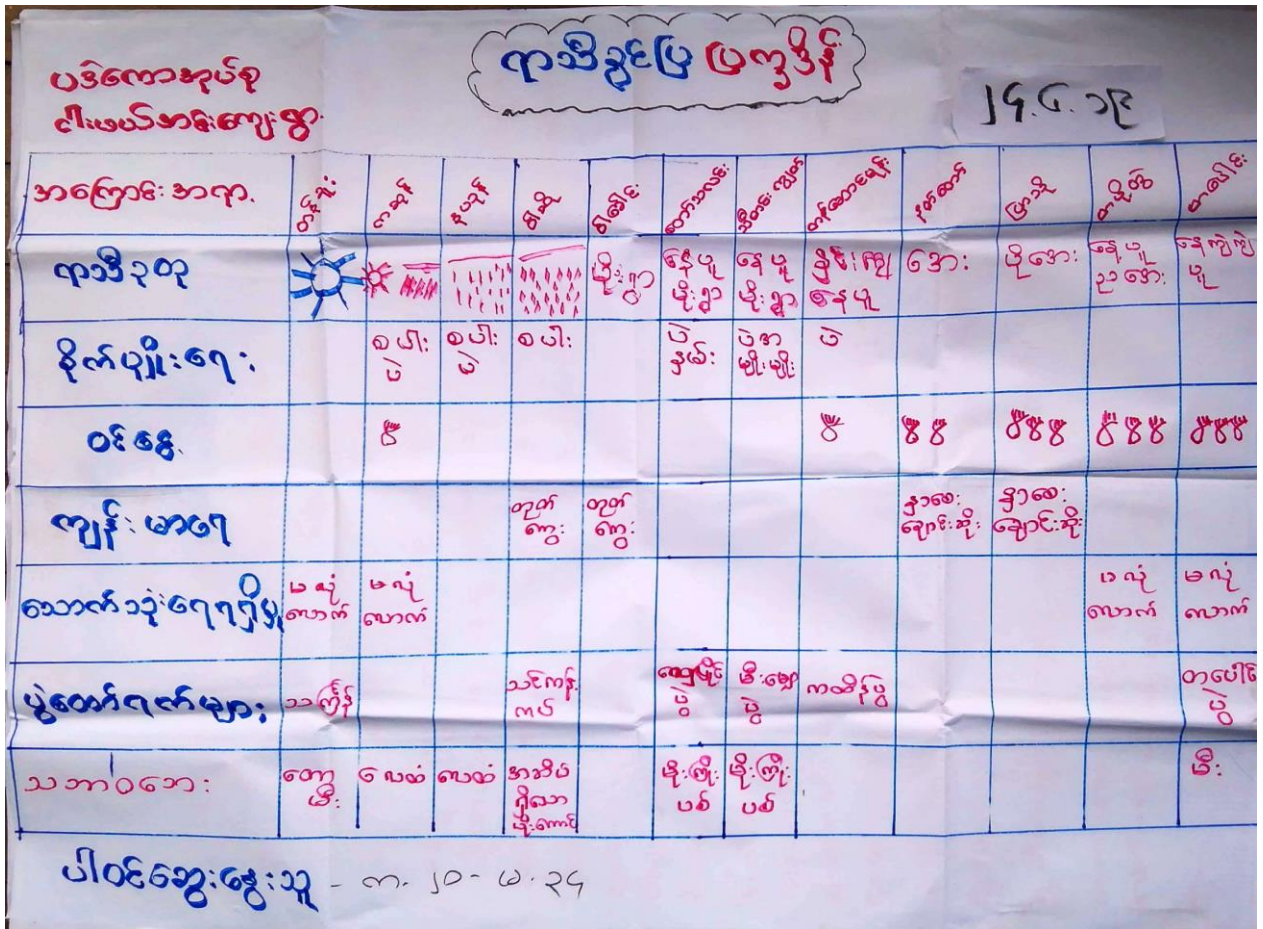 ရာသီခွင်ပြ ပြက္ခဒိန်
ပဒဲကောအုပ်စု
ငါးဖယ်အင်းကျေးရွာ
၂၄.၆.၁၉
အကြောင်းအရာ တန်ခူး ကဆုန် နယုန် ဝါဆို ဝါခေါင် တော်သလင်း သီတင်းကျွတ် တန်ဆောင်မုန်း နတ်တော် ပြာသို တပို့တွဲ တပေါင်း
ရာသီဥတု မိုးရွာ နေပူ မိုးရွာ နေပူ မိုးရွာ နှင်းကျ နေပူ အေး ပိုအေး နေပူ ညအေး နေကျဲကျဲ ပူ
စိုက်ပျိုးရေး စပါး ပဲ စပါး ပဲ စပါး ပဲ နှမ်း ပဲအမျိုးမျိုး ပဲ
ဝင်ငွေ
ကျန်းမာရေ တုတ်ကွေး တုတ်ကွေး နှာစေး ချောင်းဆိုး နှာစေး ချောင်းဆိုး
သောက်သုံးရေရရှိမှု မလုံလောက် မလုံလောက် မလုံလောက် မလုံလောက်
ပွဲတော်ရက်များ သင်္ကြန် သင်္ကန်းကပ် မီးမျှောပွဲ ကထိန်ပွဲ တပေါင်ပွဲ
သဘာဝဘေး တောမီး လေထံ လေထံ အဆိပ်ရှိသော ပိုးကောင် မိုးကြိုးပစ် မိုးကြိုးပစ် မီး
ပါဝင်ဆွေးနွေးသူ - က. ၂၀ - မ. ၃၄